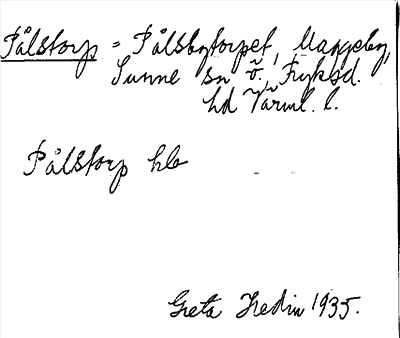 Pålstorp = Pålsbytorpet, Maggeby,
Sunne sn Ö. Fryksd.
hd Värml. l.
Pålstorp hls
Greta Hedin 1935.